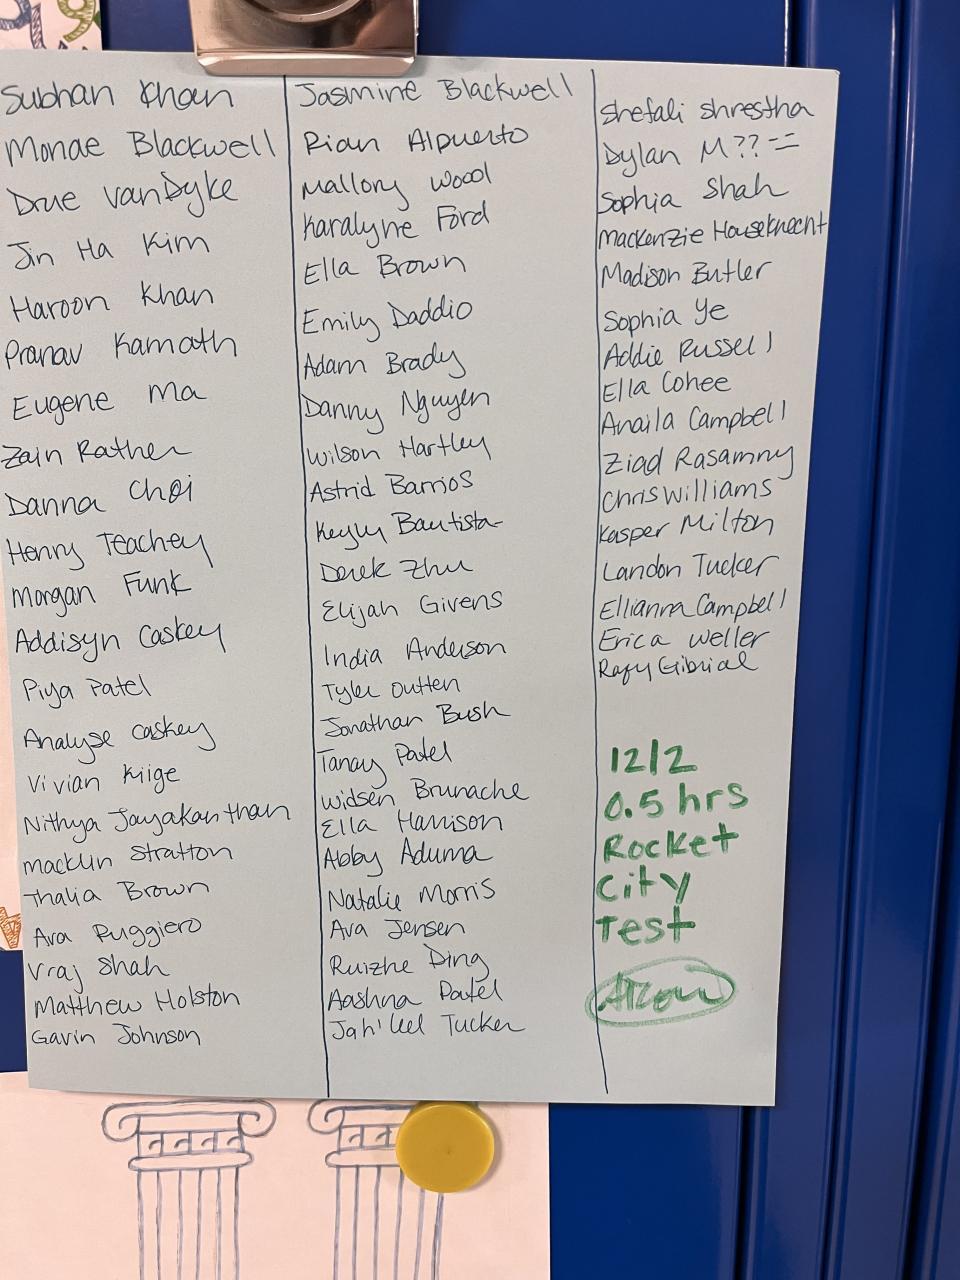 Subhan Khan
Monae Blackwell
Drue VanDyke
Jin Ha Kim
Haroon Khan
Pranav Kamath
Eugene Ma
Zain Rather
Danna Choi
Henry Teachey
Morgan Funk
Addisyn Caskey
Piya Patel
Analyse Caskey
Vivian Kiige
Nithya Jayakanthan
Macklin Stratton
Thalia Brown
Ava Ruggiero
Vraj Shah
Matthew Holston
Gavin Johnson
Jasmine Blackwell
Rian Alpuerto
Mallory Wood
Karalyne Ford
Ella Brown
Emily Daddio
Adam Brady
Danny Nguyen
Wilson Hartley
Astrid Barrios
Keyly Bautista
Derek Zhu
Elijah Givens
India Anderson
Tyler Outten
Jonathan Bush
Tanay Patel
Widsen Brunache
Ella Harrison
Abby Aduma
Natalie Morris
Ava Jensen
Ruizhe Ding
Aashna Patel
Tucker
Shefali Shrestha
Dylan M??
Sophia Shah
Mackenzie Houseknecht
Madison Butler
Sophia Ye
Addie Russell
Ella Cohee
Anaila Campbell
Ziad Rasamny
Chris Williams
Kasper Milton
Landon Tucker
Ellianna Campbell
Erica Weller
Rafy Gibrial
12/2
0.5 hrs
Rocket
City
Test